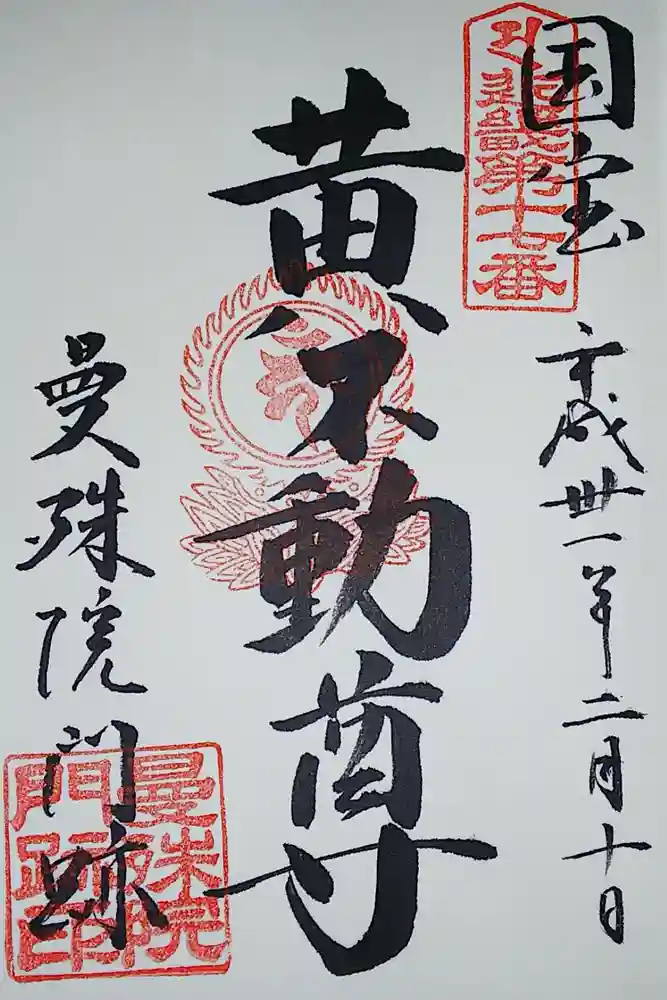 国宝
平成卅一年二月十日
第十七番
黄不動尊
曼殊院門跡
曼殊院
門跡印